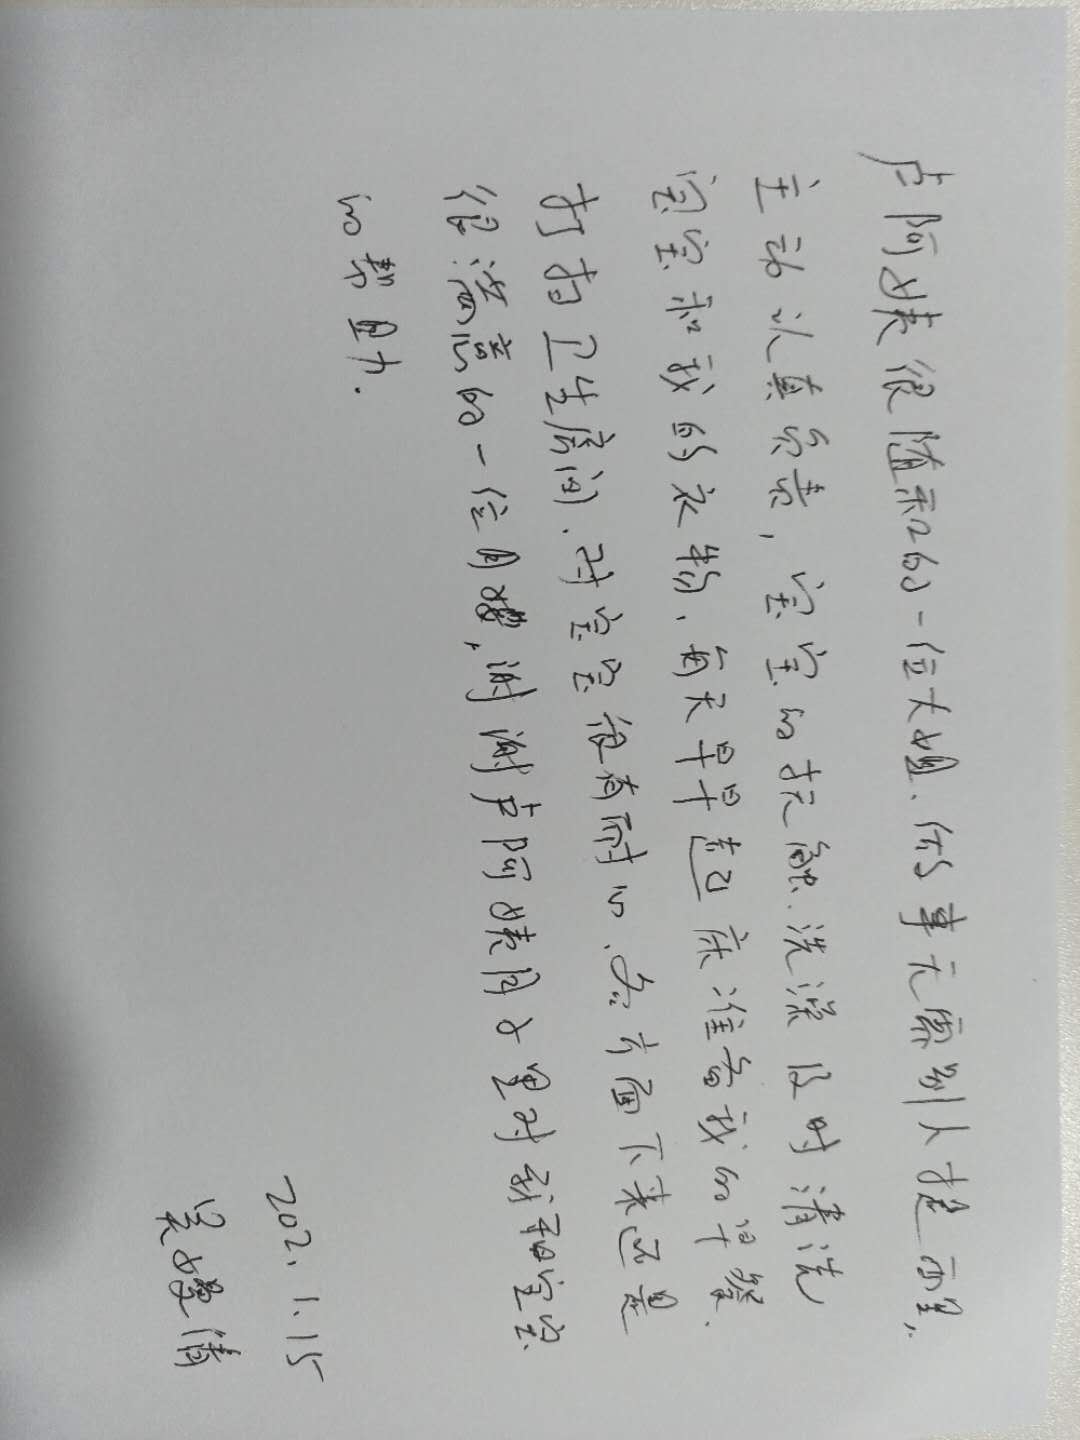 卢阿姨很随和的一位大姐、做事无需别人提醒，
主动认真负责，宝宝的抚触、洗澡及时清洗
宝宝和我的衣物、每天早早起床准备我的早餐、
打扫卫生房间、对宝宝很有耐心、各方面下来还是
很满意的一位月嫂，谢谢卢阿姨月子里对我和宝宝
的帮助.
2021.1.15
吴嫚倩